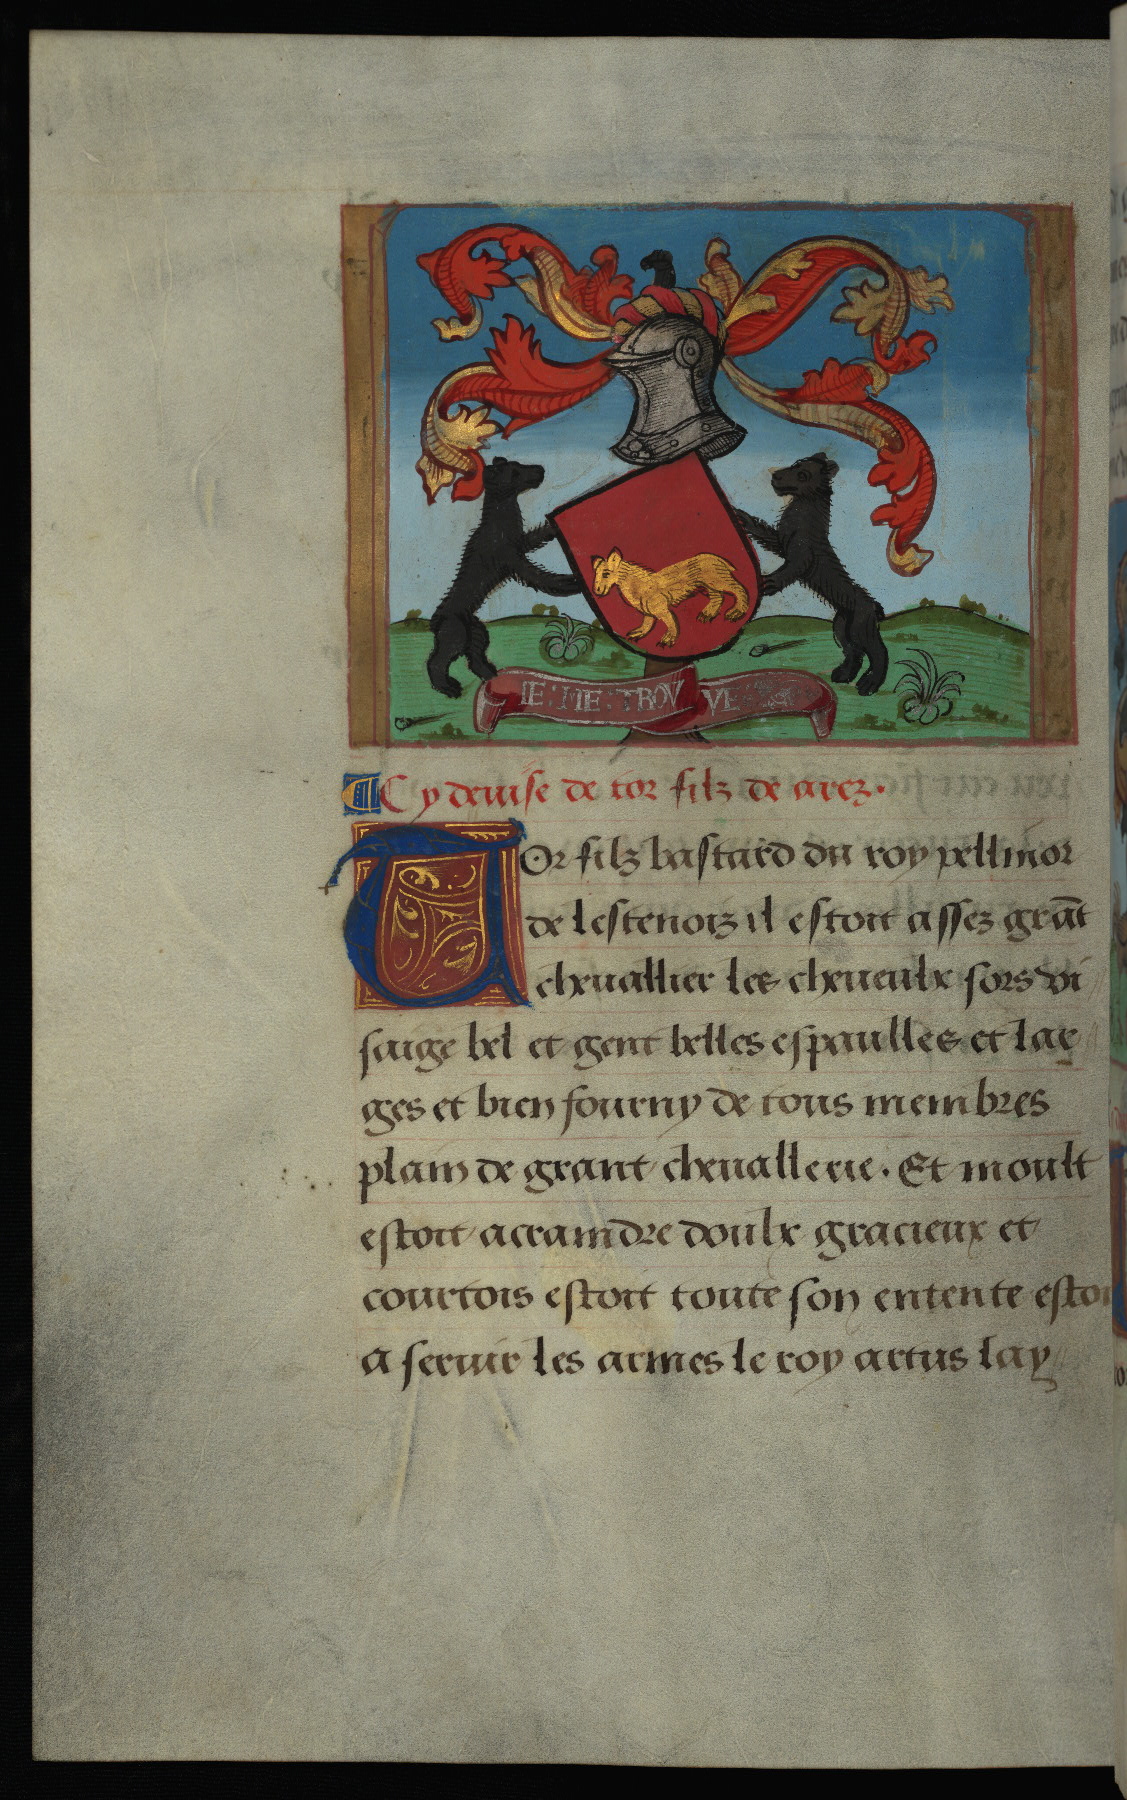 IE : ME : TROV VE
Cy deuise de tor filz de arez.
Tor filz bastard du roy pellinor
de lestenois il estoit assez grãt
cheuallier les cheueulx sors vi
saige bel et gent belles espaulles et lar
ges et bien fourny de tous membres
plain de grant cheuallerie. Et moult
estoit acraindre doulx gracieux et
courtois estoit toute son entente estoi
a seruir les armes le roy artus lay